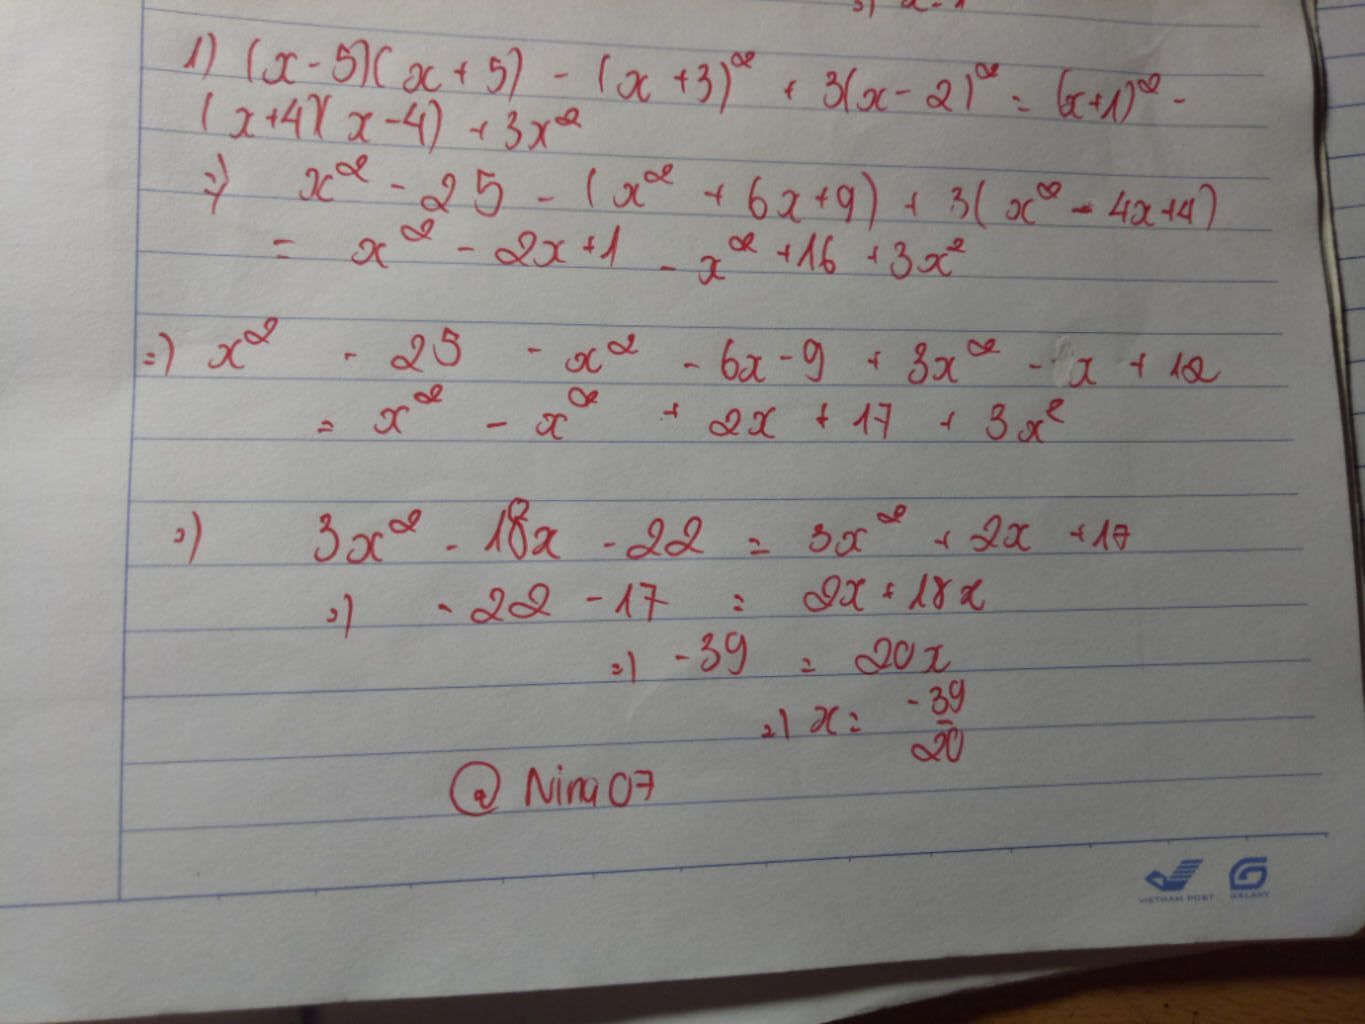 1) (x-5)(x+5) - (x+3)² + 3(x-2)² = (x+1)² -
(x+4)(x-4) + 3x²
=) x² - 25 - (x² + 6x+9) + 3(x² - 4x+4)
= x² - 2x+1 - x² +16 +3x²
=) x² - 25 - x² - 6x-9 + 3x² - x + 12
= x² - x² + 2x + 17 + 3x²
=) 3x² - 18x - 22 = 3x² + 2x +17
=) -22 -17 = 2x + 18x
=) -39 = 20x
=) x = -39/20
@ Nina07
VIETNAM POST GALAXY